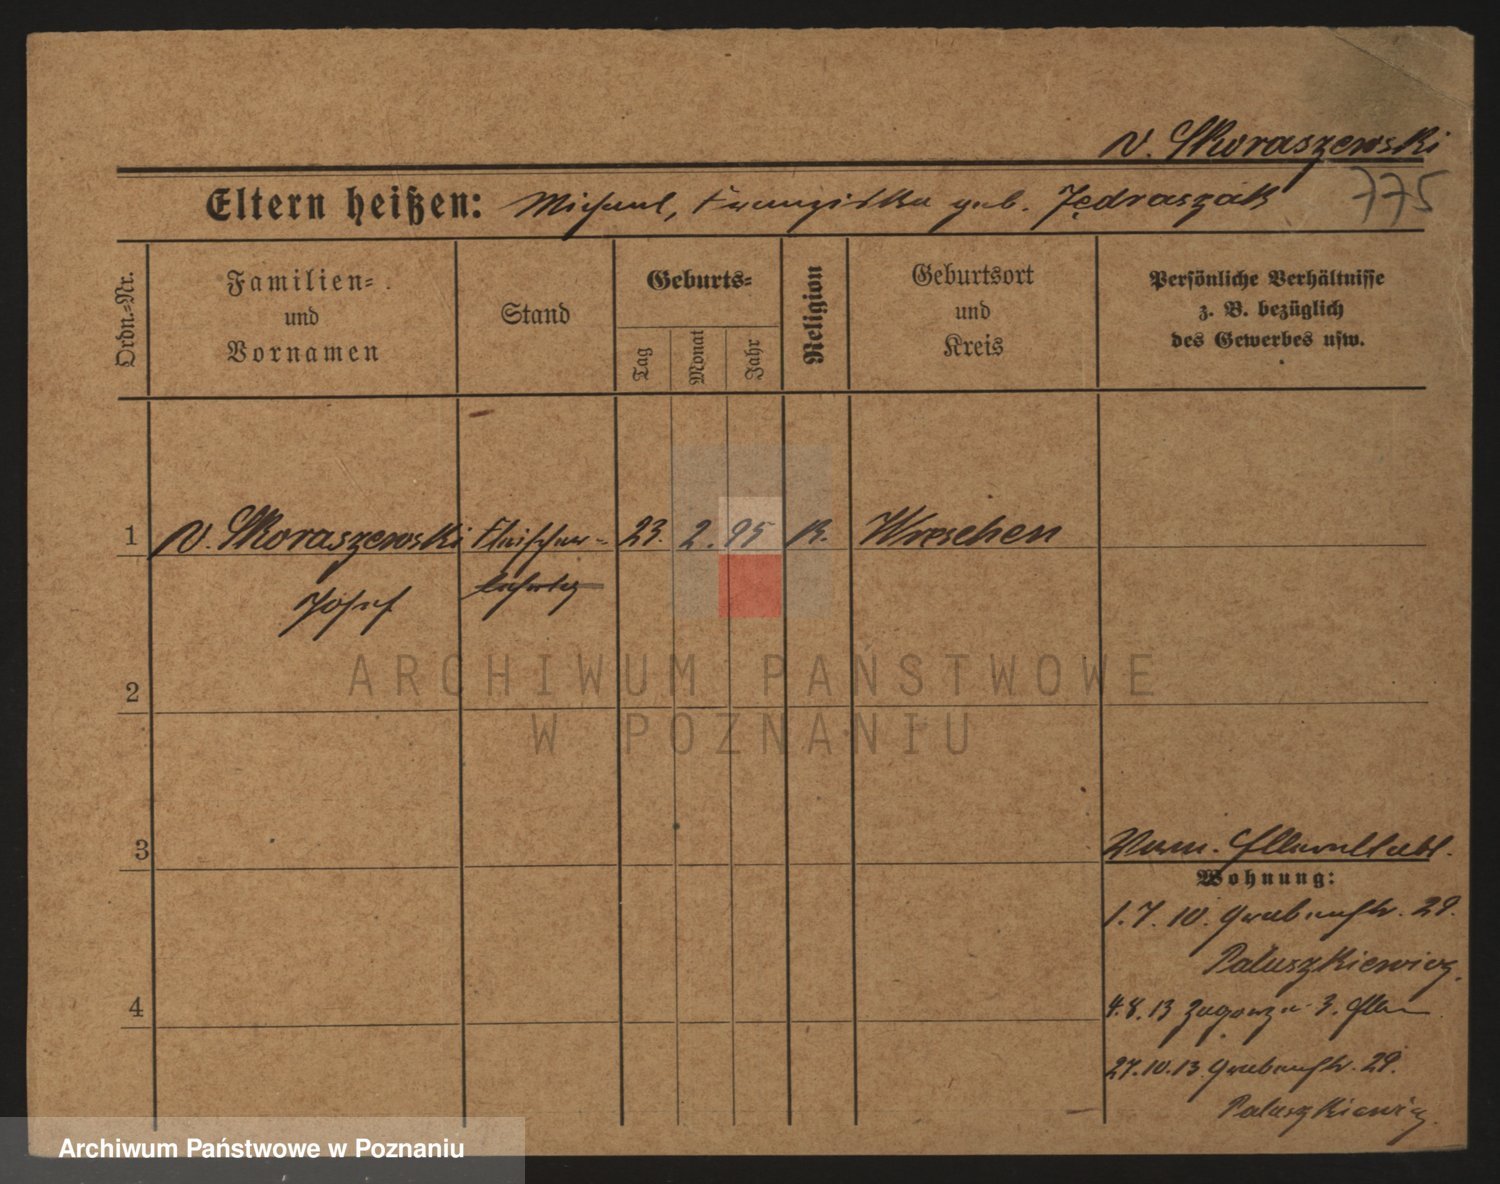 v. Skoraszewski
Eltern heißen: Michael, Franziska geb. Jędraszak 775
Ordn.-Nr.
Familien- und Vornamen
Stand
Geburts-
Tag
Monat
Jahr
Religion
Geburtsort und Kreis
Persönliche Verhältnisse
z. B. bezüglich
des Gewerbes usw.
1 v. Skoraszewski Fleischer- 23. 2. 95 k. Wreschen
Josef lehrling
2
3
Wohnung:
1.7.10. Grabenstr. 29.
Paluszkiewicz.
4
4.8.13 Zagorze 3.
27.10.13. Grabenstr. 29.
Paluszkiewicz.
ARCHIWUM PAŃSTWOWE
W POZNANIU
Archiwum Państwowe w Poznaniu